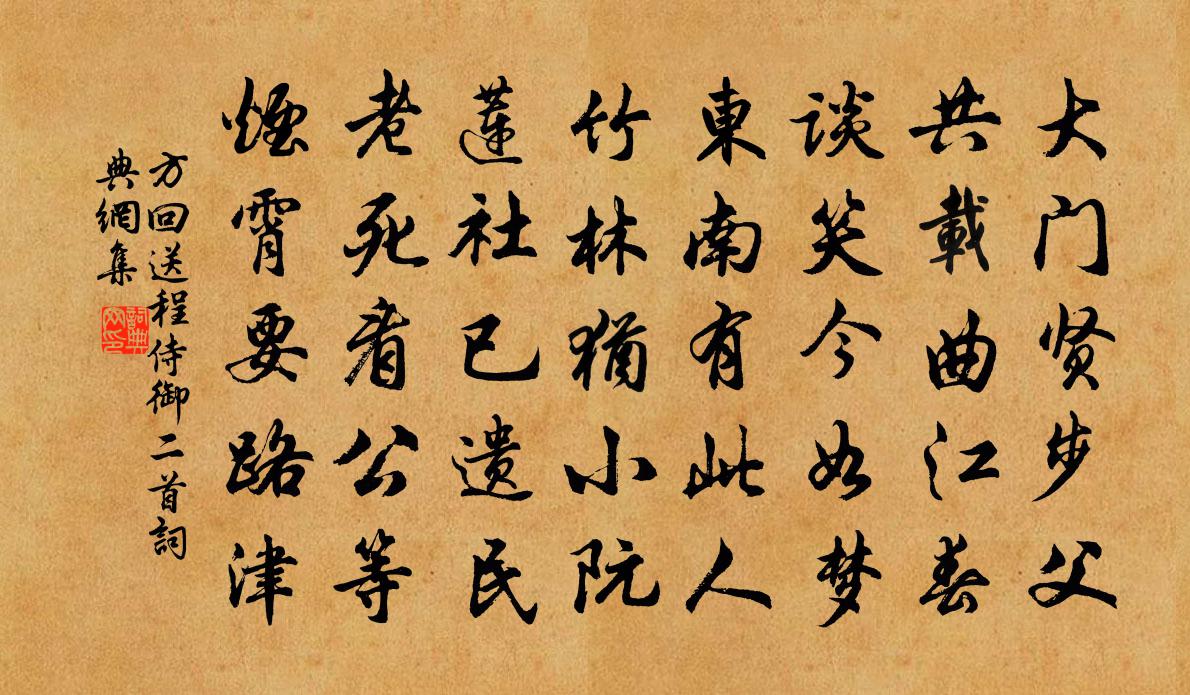 大门贤步父
共載曲江春
談笑今如梦
東南有此人
竹林猶小阮
蓮社已遗民
老死看公等
煙霄要路津
方回送程侍御二首詞
典網集
詞典
网印